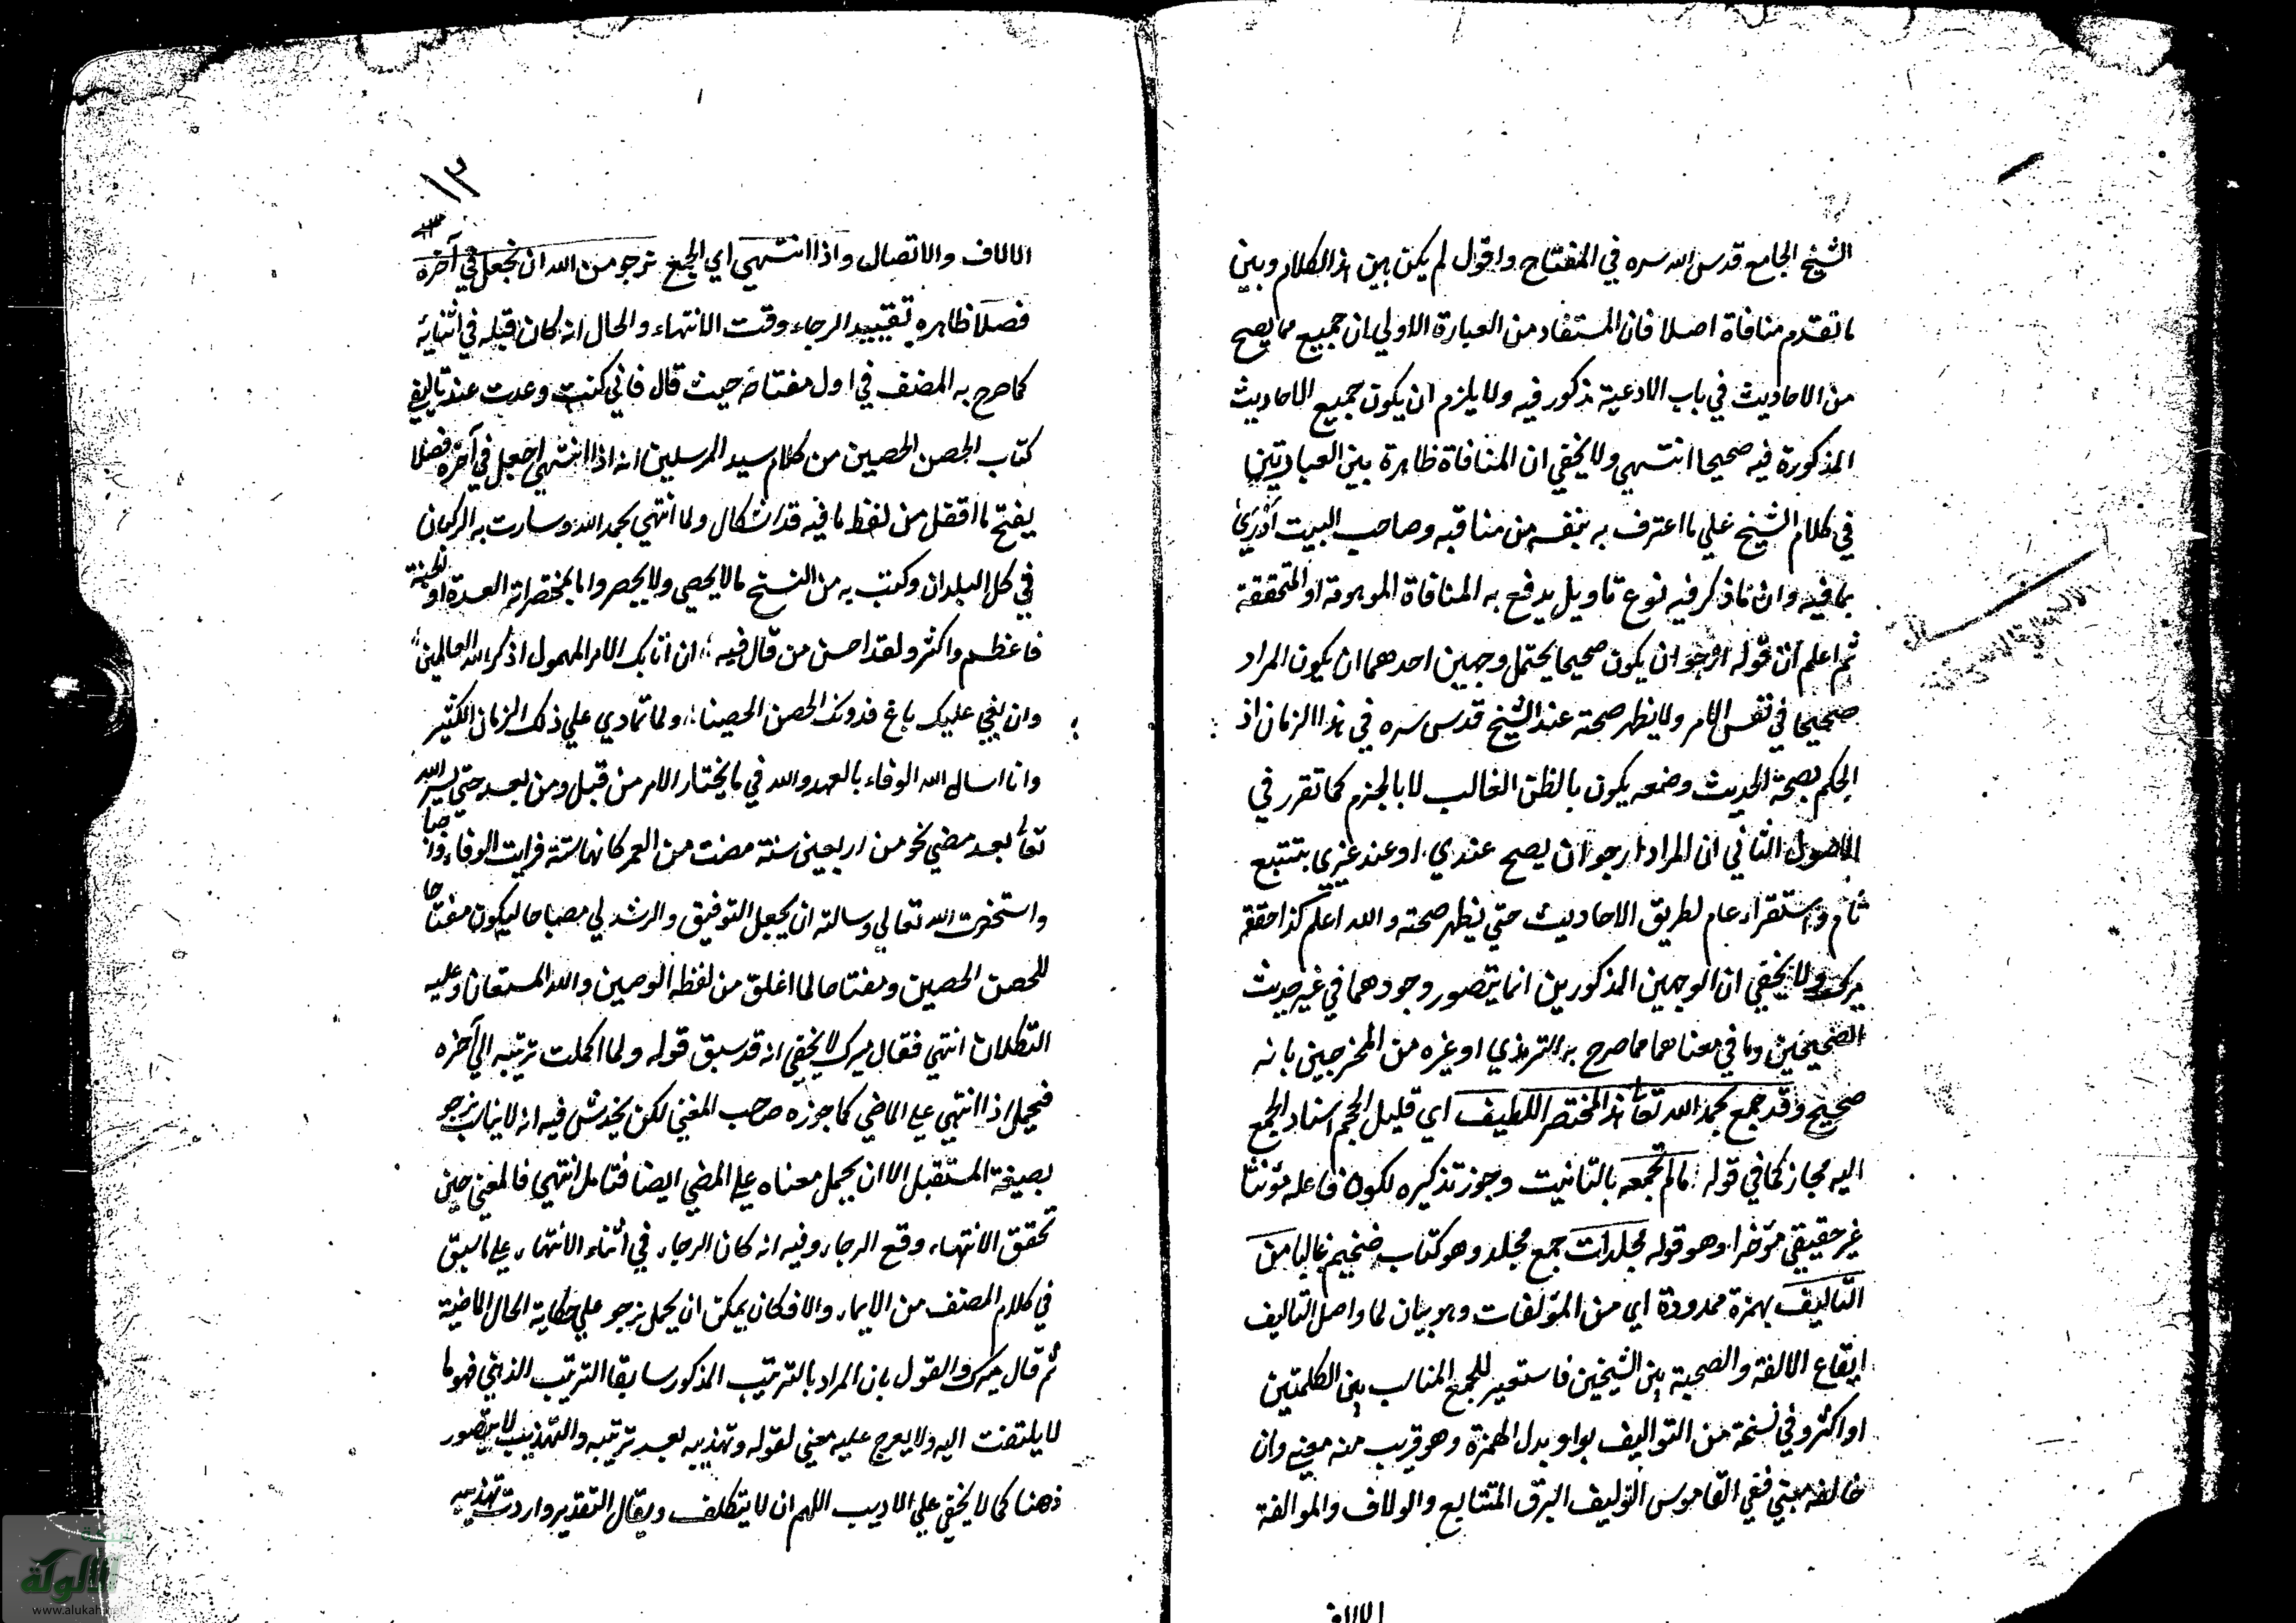 الشيخ الجامع قدس الله سره في المفتاح واقول لم يكن بين هذا الكلام وبين
ما تقدم منافاة اصلا فان المستفاد من العبارة الاولي ان جميع مما يصح
من الاحاديث في باب الادعية مذكور فيه ولا يلزم ان يكون جميع الاحاديث
المذكورة فيه صحيحا انتهي ولا يخفي ان المنافاة ظاهرة بين العبارتين
في كلام الشيخ علي ما اعترف به بنفسه من مناقبه وصاحب البيت ادري
بما فيه وان ما ذكر فيه نوع تاويل يدفع به المنافاة الموهومة او المتحققة
ثم اعلم ان قوله ارجو ان يكون صحيحا يحتمل وجهين احدهما ان يكون المراد
صحيحا في نفس الامر ولا يظهر صحته عند الشيخ قدس سره في هذا الزمان اذ
الحكم بصحة الحديث وضعفه يكون بالظن الغالب لا بالجزم كما تقرر في
الاصول الثاني ان المراد ارجو ان يصح عندي او عند غيري بتتبع
تام واستقراء عام لطريق الاحاديث حتي يظهر صحته والله اعلم كذا حققه
ميرك ولا يخفي ان الوجهين المذكورين انما يتصور وجودهما في غير حديث
الصحيحين وما في معناهما مما صرح به الترمذي او غيره من المخرجين بانه
صحيح وقد جمع بحمد الله تعالى هذا المختصر اللطيف اي قليل الحجم اسناد الجمع
اليه مجاز كما في قوله ما لم تجمعه بالتانيث وجوز تذكيره لكون فاعله مؤنثا
غير حقيقي مؤخرا وهو قوله مجلدات جمع مجلد وهو كتاب ضخيم غالبا من
التآليف بهمزة ممدودة اي من المؤلفات وهو بيان لما واصل التاليف
ايقاع الالفة والصحبة بين الشيئين فاستعير للجمع المناسب بين الكلمتين
او اكثر وفي نسخة من التواليف بواو بدل الهمزة وهو قريب منه معني وان
خالفه مبني ففي القاموس الوليف البرق المتتابع والولاف والموالفة
الالاف
١٣
الالاف والاتصال واذا انتهي اي الجمع نرجو من الله ان نجعل في آخره
فصلا ظاهره تقييد الرجاء وقت الانتهاء والحال انه كان قبله في اثنائه
كما صرح به المصنف في اول مفتاحه حيث قال فاني كنت وعدت عند تاليف
كتاب الحصن الحصين من كلام سيد المرسلين انه اذا انتهي اجعل في آخره فصلا
يفتح ما اقفل من لفظ ما فيه قد اشكال ولما انتهي بحمد الله وسارت به الركبان
في كل البلدان وكتب به من النسخ ما لا يحصي ولا يحصر واما بمختصراته العدة او الجنة
فاعظم واكثر ولقد احسن من قال فيه ان نابك الامر المهول اذكر اله العالمين
وان بغي عليك باغ فدونك الحصن الحصينا ولما تمادي علي ذلك الزمان الكثير
وانا اسال الله الوفاء بالعهد والله في ما يختار الامر من قبل ومن بعد حتي يسر الله
تعالى بعد مضي نحو من اربعين سنة مضت من العمر كانها سنة فرايت الوفاء فرضا
واستخرت الله تعالي وسالته ان يجعل التوفيق والرشد لي مصباحا ليكون مفتاحا
للحصن الحصين ومفتاحا لما اغلق من لفظه الوصين والله المستعان وعليه
التكلان انتهي فقال ميرك لا يخفي انه قد سبق قوله ولما اكملت ترتيبه الي آخره
فيحمل اذا انتهي علي الماضي كما جوزه صاحب المغني لكن يخدش فيه انه لا يناسب نرجو
بصيغة المستقبل الا ان يحمل معناه علي المضي ايضا فتامل انتهي فالمعني حين
تحقق الانتهاء وقع الرجاء وفيه انه كان الرجاء في اثناء الانتهاء علي ما سبق
في كلام المصنف من الايماء والا فكان يمكن ان يحمل نرجو علي حكاية الحال الماضية
ثم قال ميرك والقول بان المراد بالترتيب المذكور سابقا الترتيب الذهني فهو ما
لا يلتفت اليه ولا يعرج عليه معني لقوله وتهذيبه بعد ترتيبه والتهذيب لا يتصور
ذهنا كما لا يخفي علي الاديب اللهم ان لا يتكلف ويقال التقدير واردت تهذيبه
شبكة
الألوكة
www.alukah.net